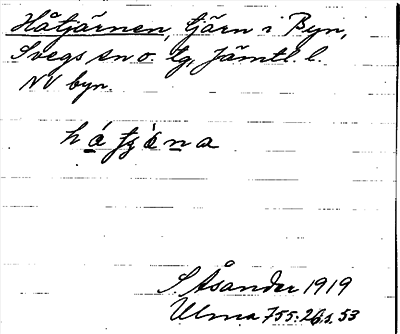 Håtjärnen, tjärn i Byn,
Svegs sn o. tg, Jämtl. l.
NV byn.
S Åsander 1919
Ulma 755:26, s. 53